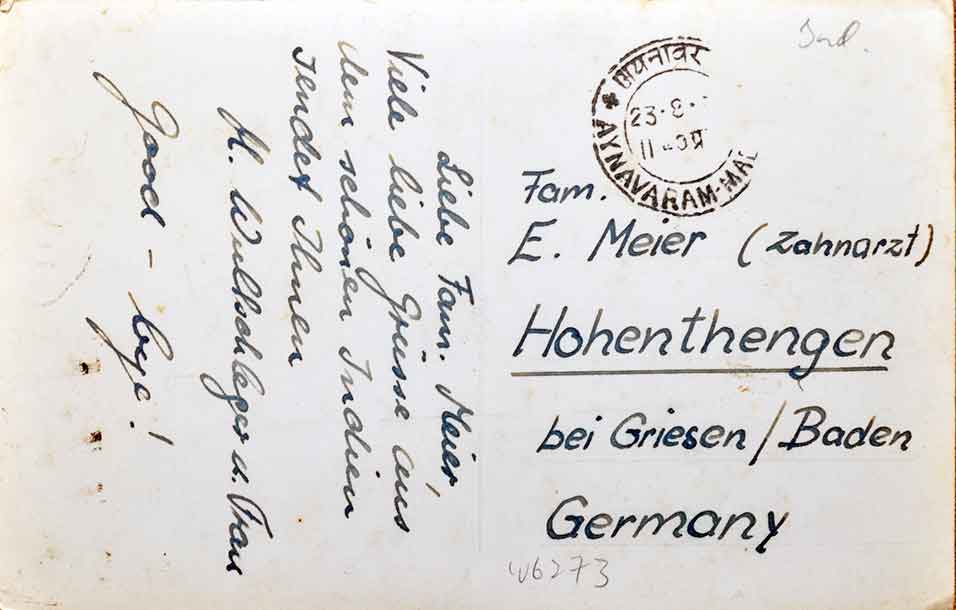 Ind.
अयनावर
AYNAVARAM-MAD
23·8·
11
Liebe Fam. Meier,
Viele liebe Grüsse aus
dem schönen Indien
sendet Ihnen
u. Frau
Good - bye!
Fam.
E. Meier (Zahnarzt)
Hohenthengen
bei Griesen/Baden
Germany
W6273